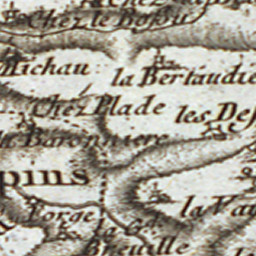 Chez le Bossu
Michau
la Bertaudie
Chez Plade
les Des
la Baronniere
pins
Forge
la Vau
la G.
Breuille